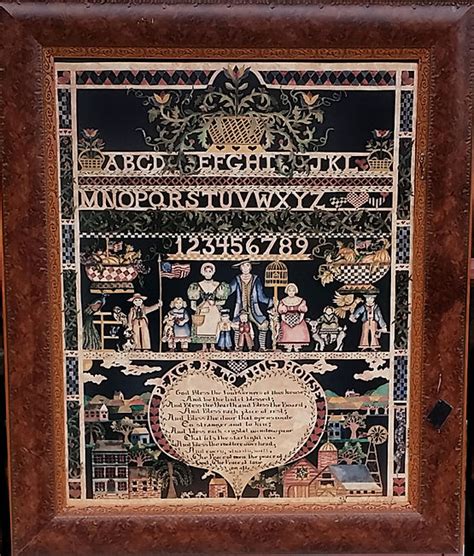 ABCD EFGHI JKL
MNOPQRSTUVWXYZ
123456789
PEACE BE TO THIS HOUSE
God Bless the four corners of this house
And be the lintel blessed;
And Bless the Hearth and Bless the Board
And Bless each place of rest;
And Bless the door that opens wide
To stranger and to kin;
And Bless each crystal windowpane
That lets the starlight in.
And Bless the rooftree overhead,
And every sturdy wall;
The Peace of man, the peace of